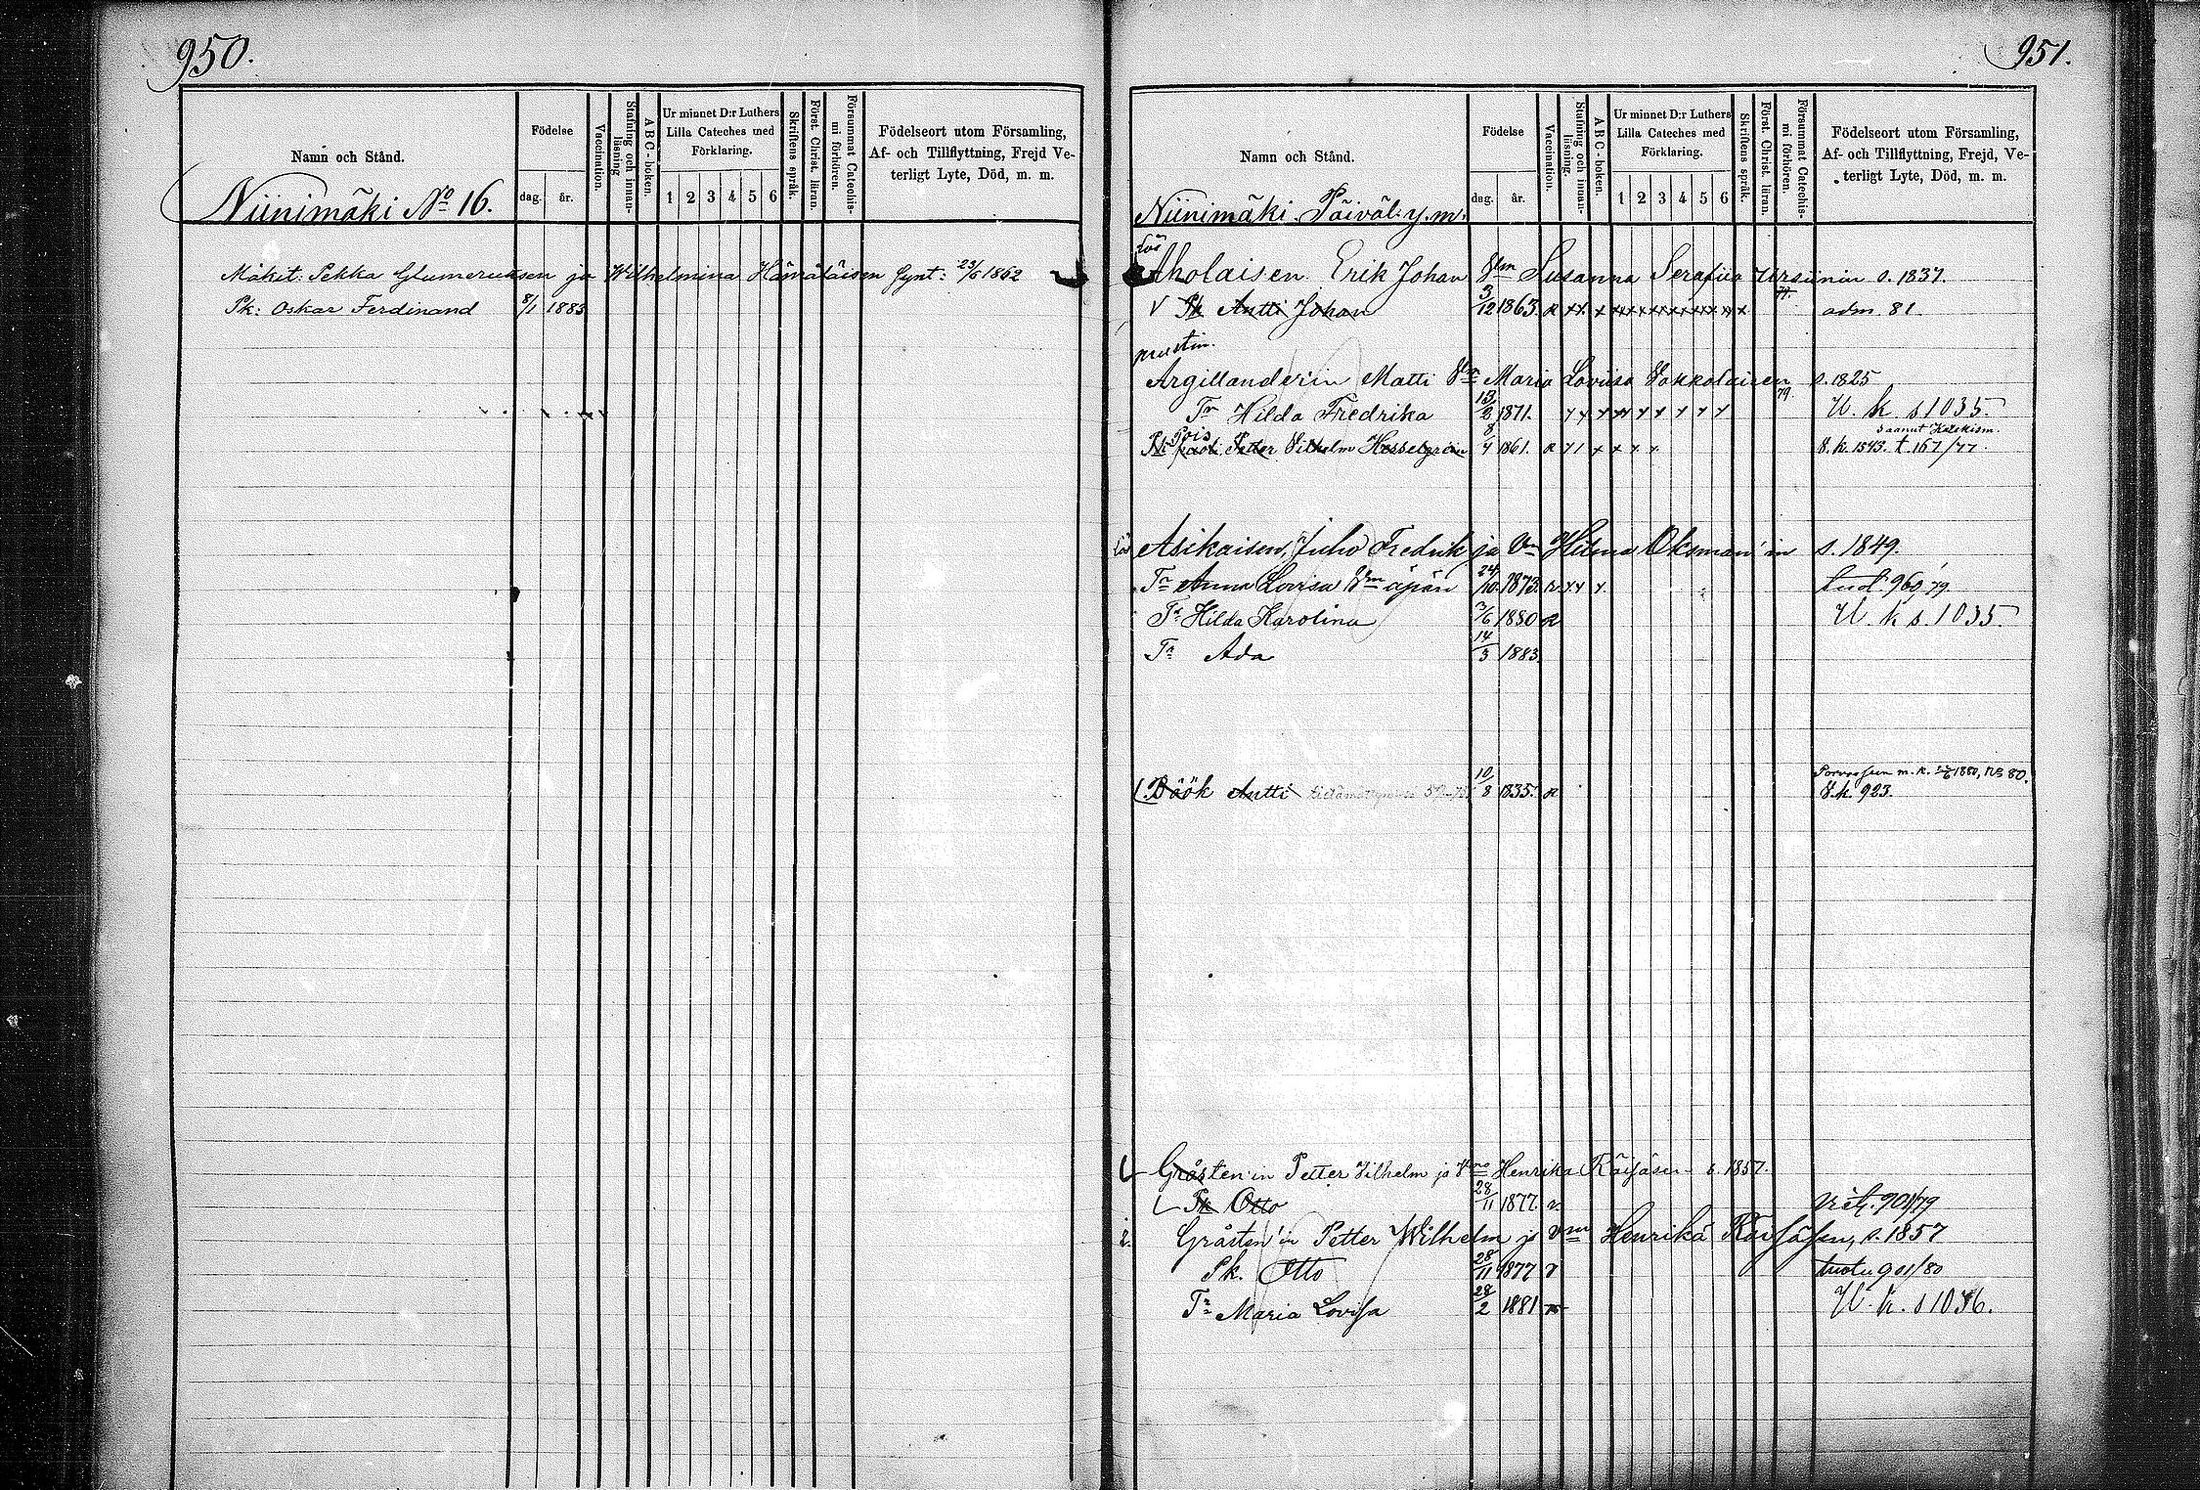 950.
Namn och Stånd.
Födelse
dag. år.
Vaccination.
Stafning och innanläsning
A B C - boken.
Ur minnet D:r Luthers
Lilla Cateches med
Förklaring.
1 2 3 4 5 6
Skriftens språk.
Först. Christ. läran.
Försummat Catechismi förhören.
Födelseort utom Församling,
Af- och Tillflyttning, Frejd Ve-
terligt Lyte, Död, m. m.
Niinimäki No 16.
Mäkit: Pekka Glumeruksen ja Wilhelmina Hämäläisen synt: 23/6 1862
Pk: Oskar Ferdinand 8/1 1883
951.
Namn och Stånd.
Födelse
dag. år.
Vaccination.
Stafning och innanläsning.
A B C - boken.
Ur minnet D:r Luthers
Lilla Cateches med
Förklaring.
1 2 3 4 5 6
Skriftens språk.
Först. Christ. läran.
Försummat Catechismi förhören.
Födelseort utom Församling,
Af- och Tillflyttning, Frejd, Ve-
terligt Lyte, Död, m. m.
Niinimäki Päiväl. y. m.
Lös
Aholaisen Erik Johan Vm Susanna Serafiia Ursinin s. 1837.
V Pk Antti Johan 3/12 1863. adm. 81.
Argillanderin Matti Vm Maria Loviisa Vokkolaisen s. 1825
Tr Hilda Fredrika 13/2 1871. U. k s 1035.
Petter Vilhelm Hesselgrénin 8/4 1861. 8. k. 1543. t. 167/77.
Lös Asikaisen, Juho Fredrik ja Vm Hilma Oksman'in s. 1849.
Tr Anna Lovisa Vm äpärä 24/10 1873. 960/79.
Tr Hilda Karolina 3/6 1880 U. k s. 1035.
Tr Ada 14/3 1883.
Böök Antti 10/8 1835. Porvooseen m. k. 1880, No 80.
8. k. 923.
L Gråsten'in Petter Vilhelm ja Vmo Henrika Räisäsen s. 1857.
L Pk Otto 28/11 1877. 901/79
Gråsten'in Petter Wilhelm ja Vmn Henrika Räisäsen, s. 1857
Pk. Otto 28/11 1877 tuotu 901/80
Tr Maria Lovisa 28/2 1881 U. k. s 1036.